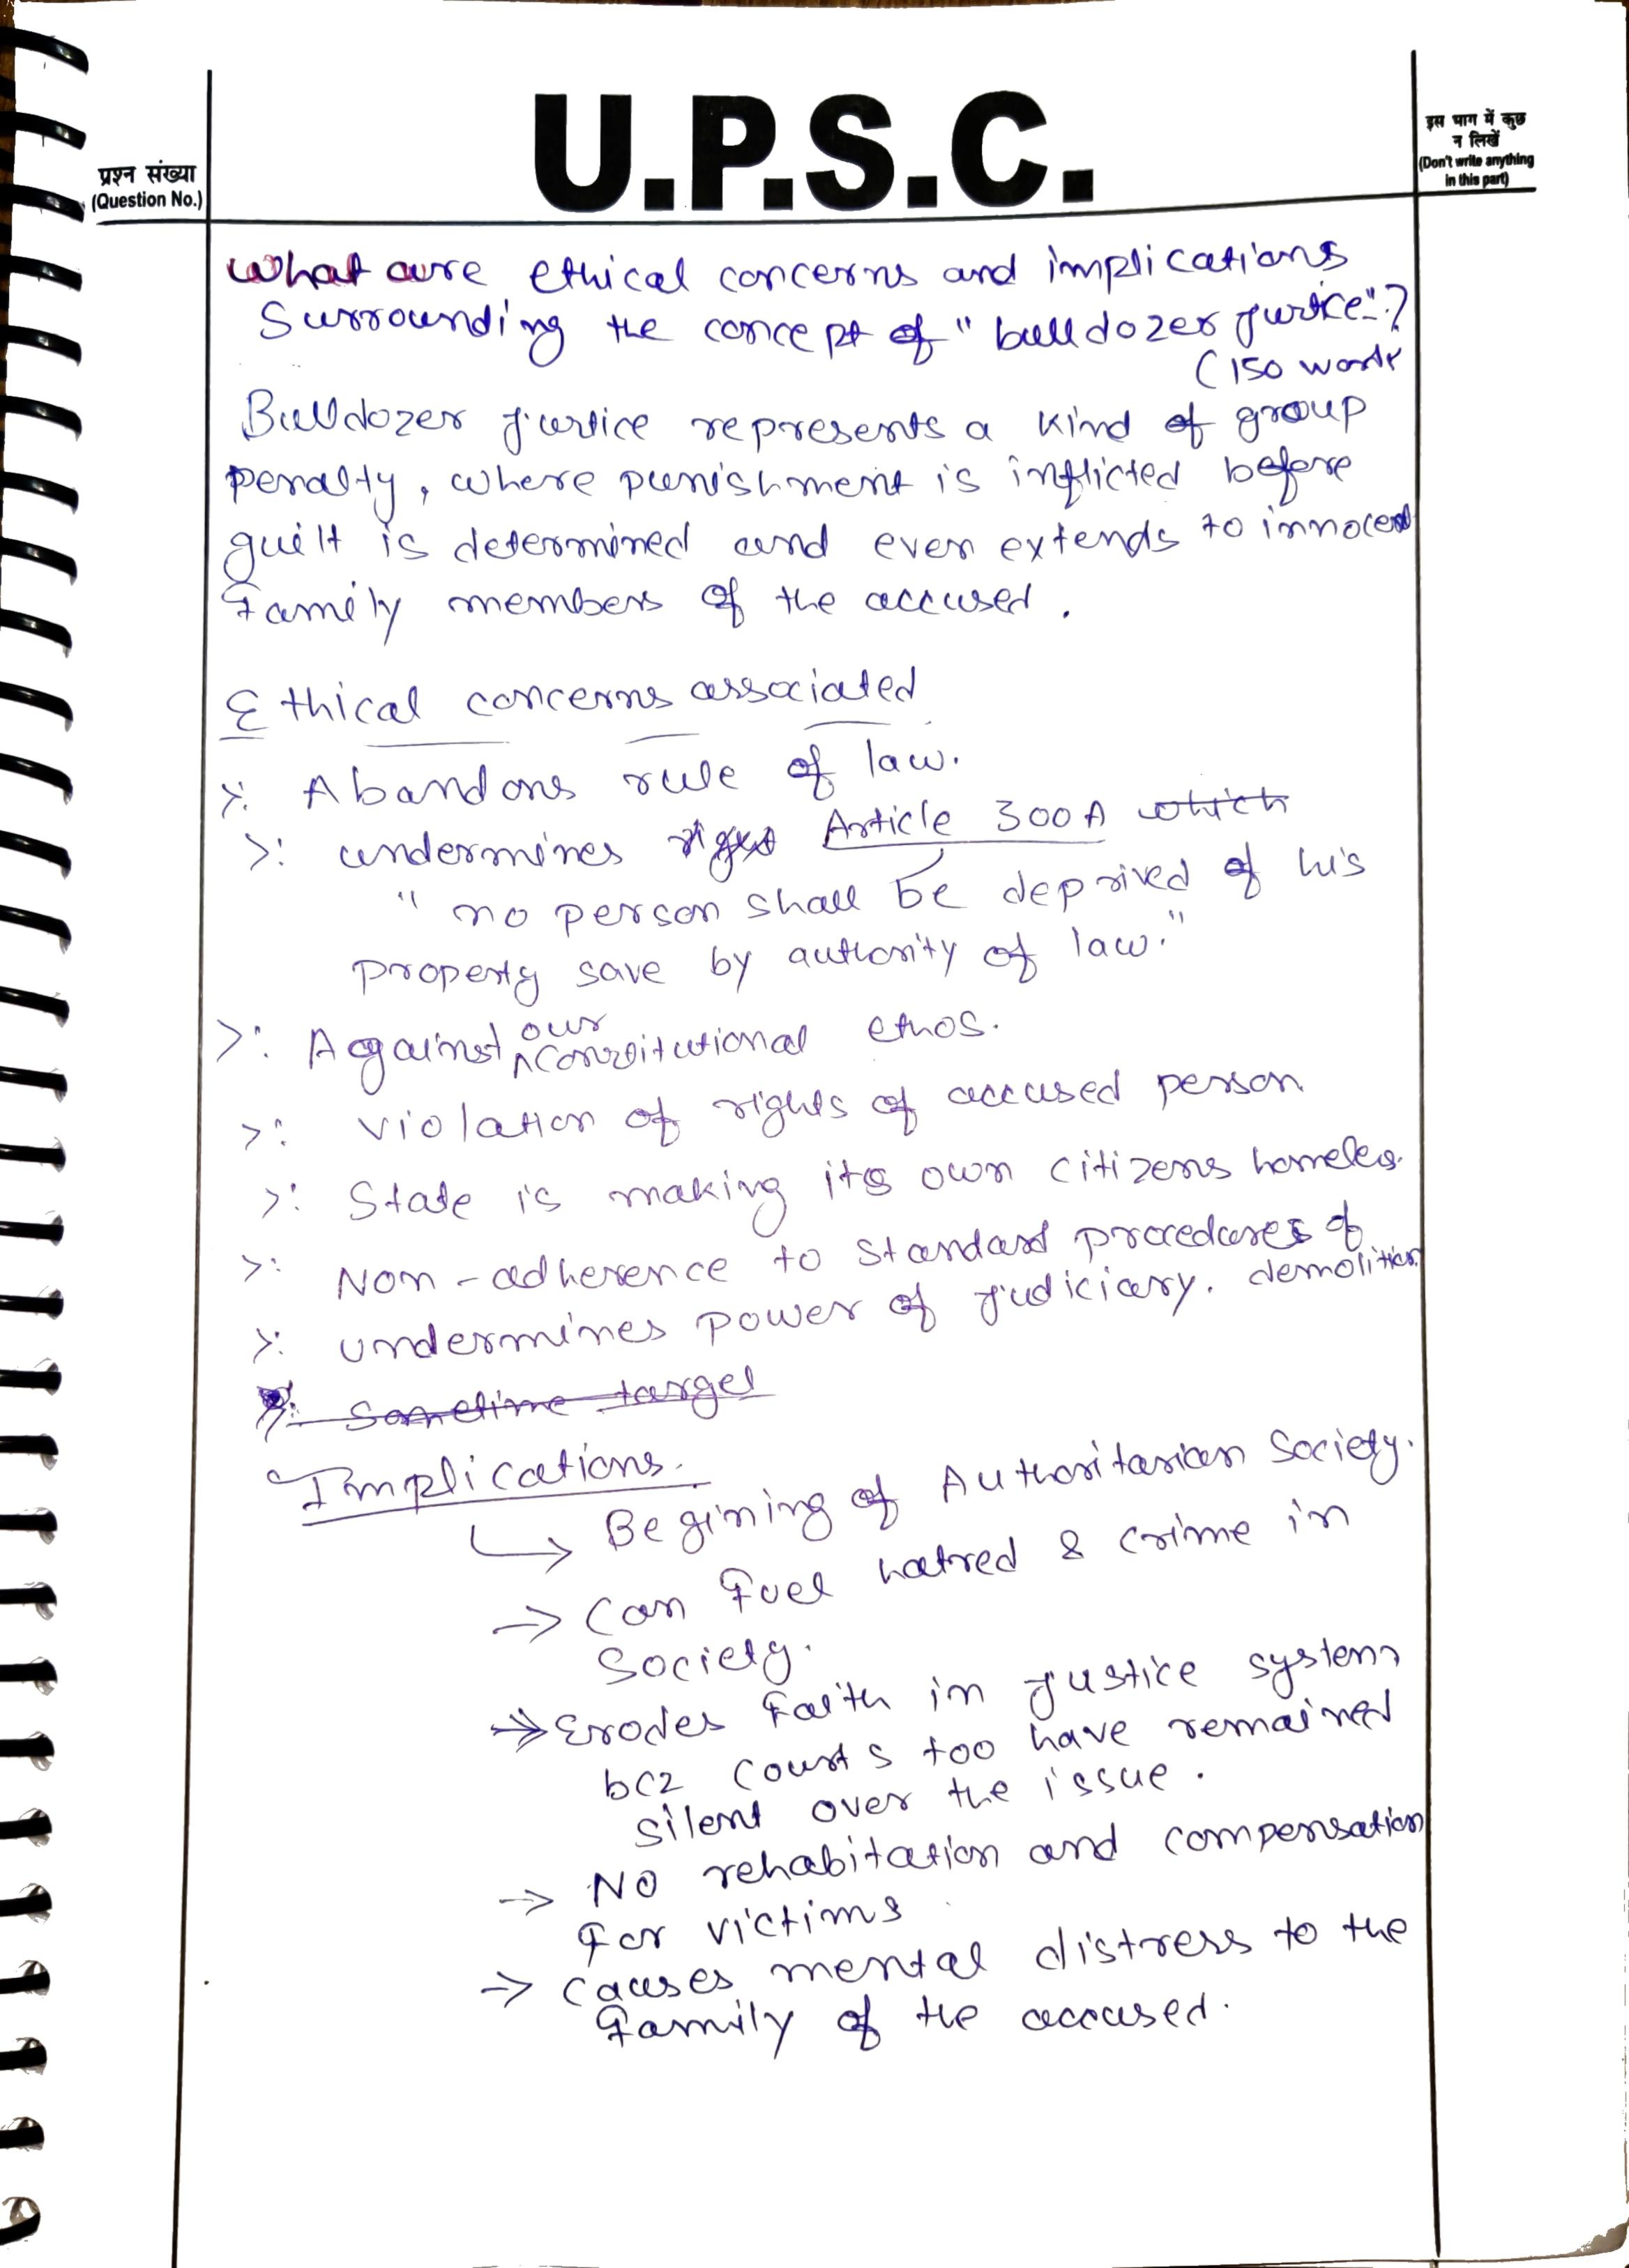 U.P.S.C.
प्रश्न संख्या
(Question No.)
इस भाग में कुछ
न लिखें
(Don't write anything
in this part)
What are ethical concerns and implications
Surrounding the concept of "bulldozer justice"?
(150 words
Bulldozer justice represents a kind of group
penalty, where punishment is inflicted before
guilt is determined and even extends to innocent
family members of the accused.
Ethical concerns associated
>: Abandons rule of law.
>: undermines Article 300A which
"no person shall be deprived of his
property save by authority of law."
>: Against our constitutional ethos.
>: violation of rights of accused person
>: State is making its own citizens homeless.
>: Non-adherence to standard procedures of
demolition.
>: undermines power of judiciary.
>: Sometime target
Implications.
↳ Begining of Authoritarian Society.
→ Can fuel hatred & crime in
Society.
→ Erodes faith in justice system
bcz courts too have remained
silent over the issue.
→ No rehabitation and compensation
for victims
→ causes mental distress to the
family of the accused.